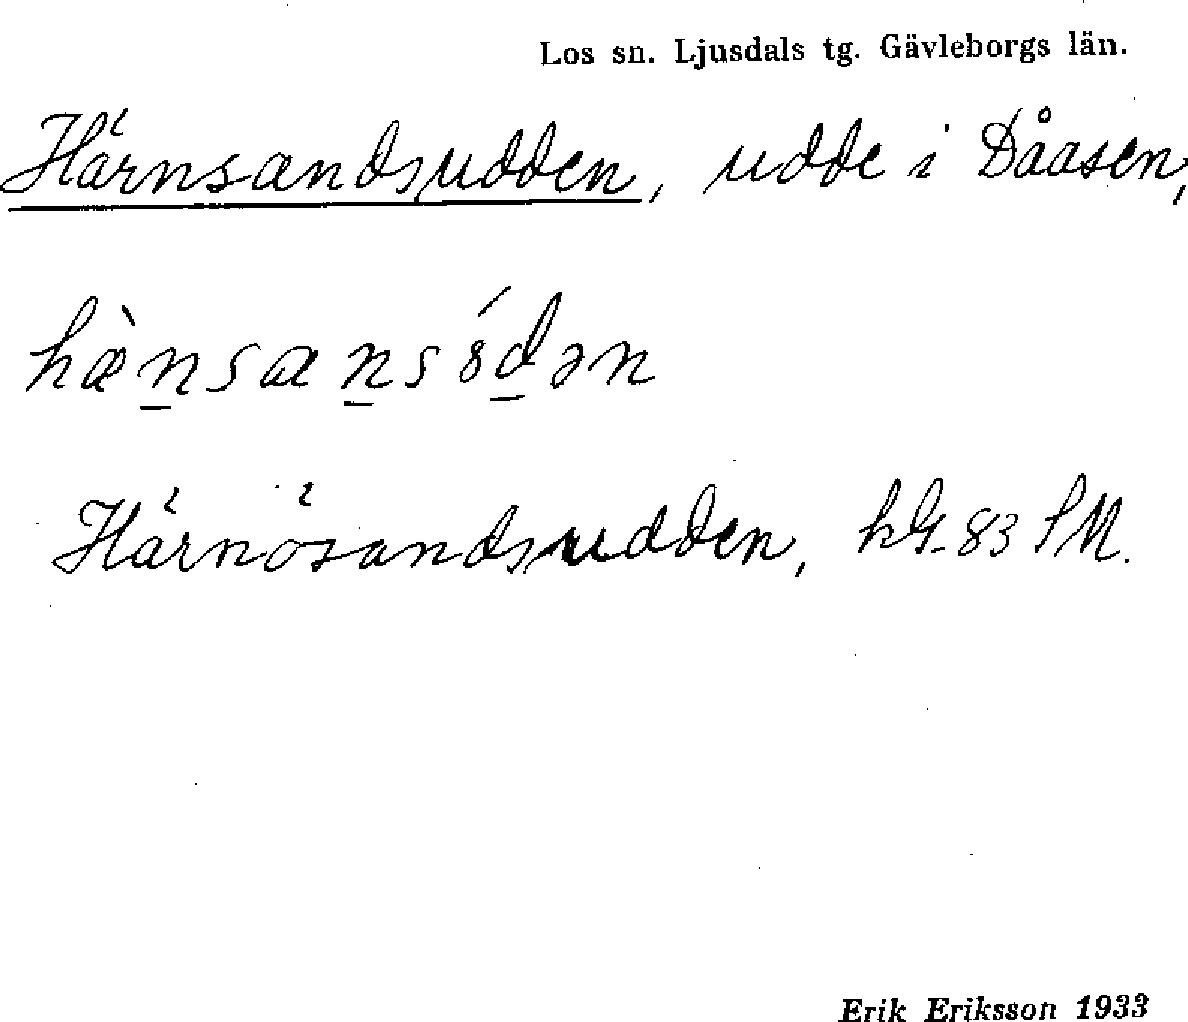 Los sn. Ljusdals tg. Gävleborgs län.
Härnsandsudden, udde i Dåasen,
hæ̀n̲san̲sód̲ən
Härnösandsudden, kG. 83 SM.
Erik Eriksson 1933